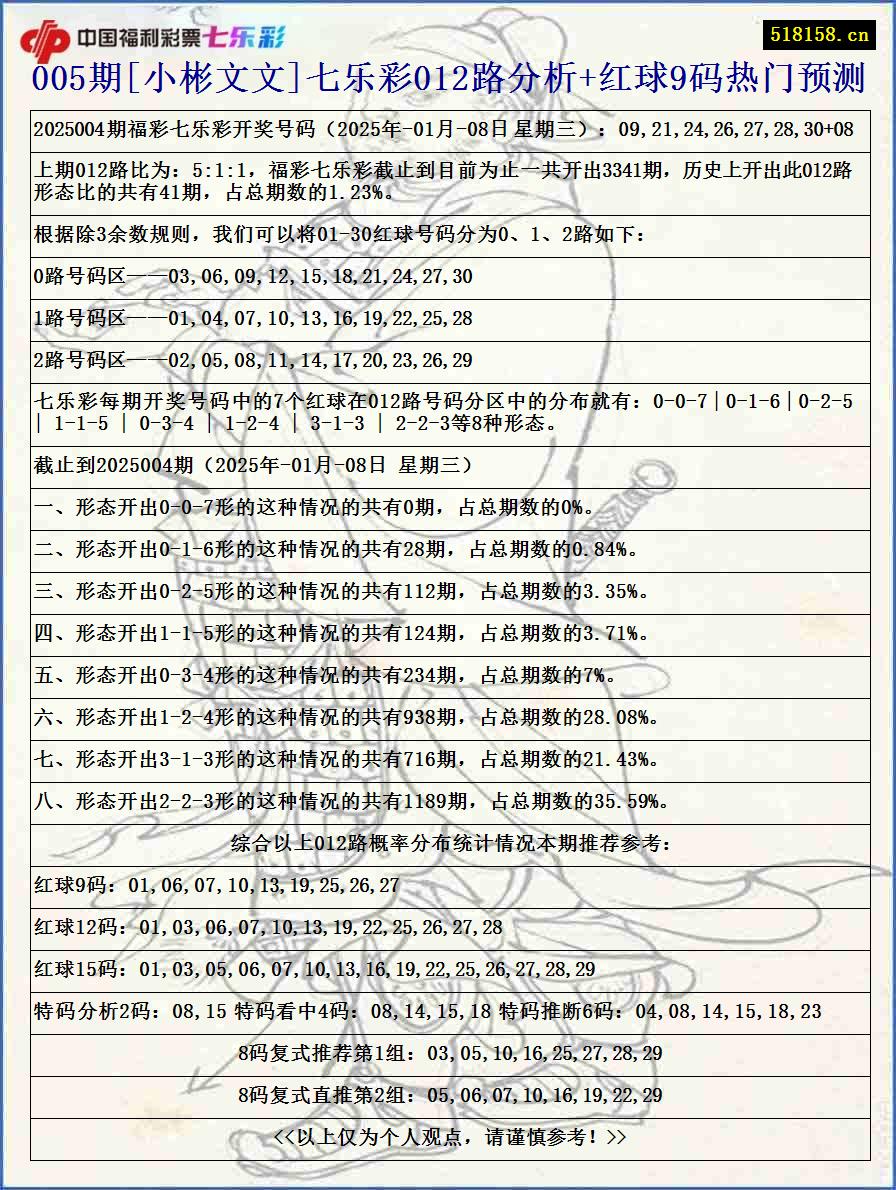 中国福利彩票七乐彩
518158.cn
005期[小彬文文]七乐彩012路分析+红球9码热门预测
2025004期福彩七乐彩开奖号码（2025年-01月-08日 星期三）：09,21,24,26,27,28,30+08
上期012路比为：5:1:1，福彩七乐彩截止到目前为止一共开出3341期，历史上开出此012路
形态比的共有41期，占总期数的1.23%。
根据除3余数规则，我们可以将01-30红球号码分为0、1、2路如下：
0路号码区——03,06,09,12,15,18,21,24,27,30
1路号码区——01,04,07,10,13,16,19,22,25,28
2路号码区——02,05,08,11,14,17,20,23,26,29
七乐彩每期开奖号码中的7个红球在012路号码分区中的分布就有：0-0-7｜0-1-6｜0-2-5
｜ 1-1-5 ｜ 0-3-4 ｜ 1-2-4 ｜ 3-1-3 ｜ 2-2-3等8种形态。
截止到2025004期（2025年-01月-08日 星期三）
一、形态开出0-0-7形的这种情况的共有0期，占总期数的0%。
二、形态开出0-1-6形的这种情况的共有28期，占总期数的0.84%。
三、形态开出0-2-5形的这种情况的共有112期，占总期数的3.35%。
四、形态开出1-1-5形的这种情况的共有124期，占总期数的3.71%。
五、形态开出0-3-4形的这种情况的共有234期，占总期数的7%。
六、形态开出1-2-4形的这种情况的共有938期，占总期数的28.08%。
七、形态开出3-1-3形的这种情况的共有716期，占总期数的21.43%。
八、形态开出2-2-3形的这种情况的共有1189期，占总期数的35.59%。
综合以上012路概率分布统计情况本期推荐参考：
红球9码：01,06,07,10,13,19,25,26,27
红球12码：01,03,06,07,10,13,19,22,25,26,27,28
红球15码：01,03,05,06,07,10,13,16,19,22,25,26,27,28,29
特码分析2码：08,15 特码看中4码：08,14,15,18 特码推断6码：04,08,14,15,18,23
8码复式推荐第1组：03,05,10,16,25,27,28,29
8码复式直推第2组：05,06,07,10,16,19,22,29
<<以上仅为个人观点，请谨慎参考！>>